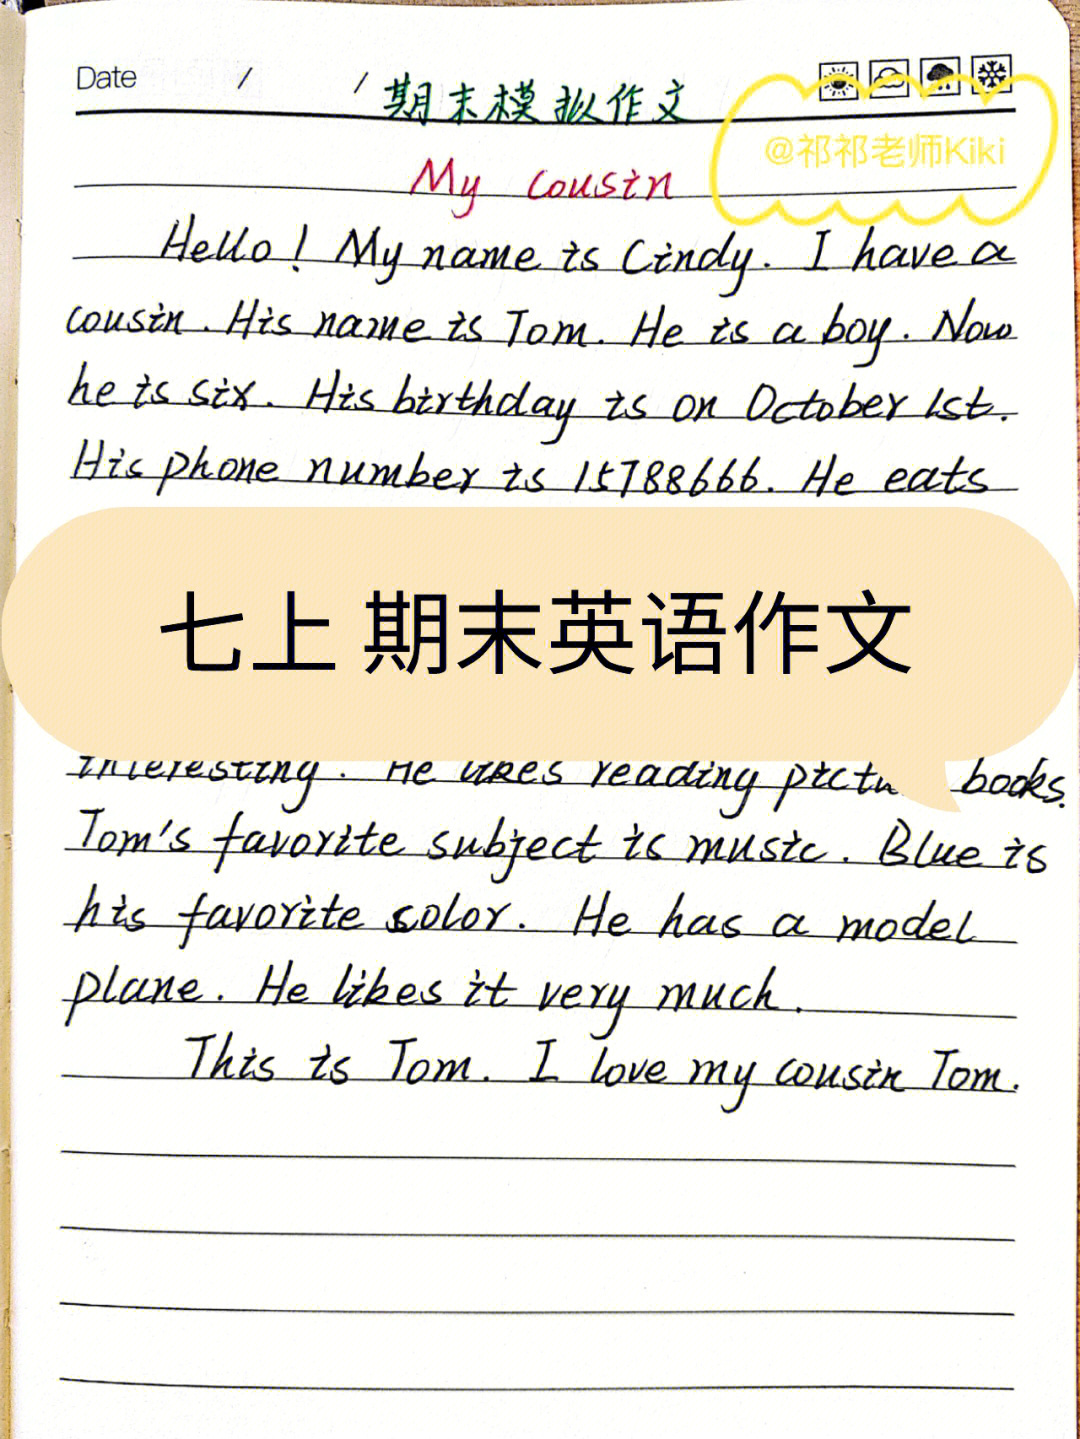 Date / /
期末模拟作文
@祁祁老师Kiki
My cousin
Hello! My name is Cindy. I have a
cousin. His name is Tom. He is a boy. Now
he is six. His birthday is on October 1st.
His phone number is 15788666. He eats
七上 期末英语作文
interesting. He likes reading picture books.
Tom's favorite subject is music. Blue is
his favorite color. He has a model
plane. He likes it very much.
This is Tom. I love my cousin Tom.